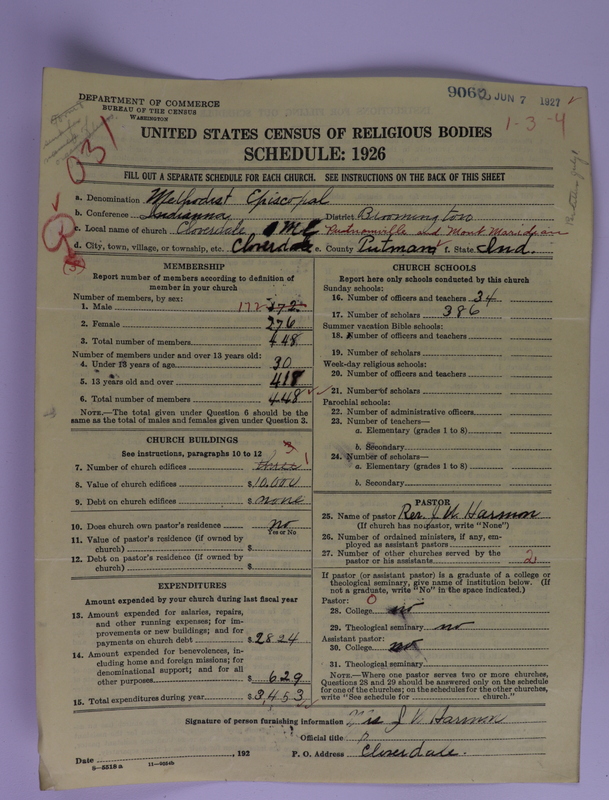 9060 JUN 7 1927
1-3-4
031
DEPARTMENT OF COMMERCE
BUREAU OF THE CENSUS
WASHINGTON
UNITED STATES CENSUS OF RELIGIOUS BODIES
SCHEDULE: 1926
FILL OUT A SEPARATE SCHEDULE FOR EACH CHURCH. SEE INSTRUCTIONS ON THE BACK OF THIS SHEET
a. Denomination Methodist Episcopal
b. Conference Indiana District Bloomington
c. Local name of church Cloverdale M E Putnamville and Mont Meridian
d. City, town, village, or township, etc. Cloverdale e. County Putnam f. State Ind.
MEMBERSHIP
Report number of members according to definition of
member in your church
Number of members, by sex:
1. Male 172 172
2. Female 276
3. Total number of members 448
Number of members under and over 13 years old:
4. Under 13 years of age 30
5. 13 years old and over 418
6. Total number of members 448
NOTE.—The total given under Question 6 should be the
same as the total of males and females given under Question 3.
CHURCH BUILDINGS
See instructions, paragraphs 10 to 12
7. Number of church edifices three 3 1
8. Value of church edifices $10,000
9. Debt on church edifices $ none
10. Does church own pastor's residence no
Yes or No
11. Value of pastor's residence (if owned by
church) $
12. Debt on pastor's residence (if owned by
church) $
EXPENDITURES
Amount expended by your church during last fiscal year
13. Amount expended for salaries, repairs,
and other running expenses; for im-
provements or new buildings; and for
payments on church debt $2824
14. Amount expended for benevolences, in-
cluding home and foreign missions; for
denominational support; and for all
other purposes $629
15. Total expenditures during year $3,453
CHURCH SCHOOLS
Report here only schools conducted by this church
Sunday schools:
16. Number of officers and teachers 34
17. Number of scholars 386
Summer vacation Bible schools:
18. Number of officers and teachers
19. Number of scholars
Week-day religious schools:
20. Number of officers and teachers
21. Number of scholars
Parochial schools:
22. Number of administrative officers
23. Number of teachers—
a. Elementary (grades 1 to 8)
b. Secondary
24. Number of scholars—
a. Elementary (grades 1 to 8)
b. Secondary
PASTOR
25. Name of pastor Rev. J. V. Harmon
(If church has no pastor, write "None")
26. Number of ordained ministers, if any, em-
ployed as assistant pastors
27. Number of other churches served by the
pastor or his assistants 2
If pastor (or assistant pastor) is a graduate of a college or
theological seminary, give name of institution below. (If
not a graduate, write "No" in the space indicated.)
Pastor: 0
28. College no
29. Theological seminary no
Assistant pastor:
30. College no
31. Theological seminary
NOTE.—Where one pastor serves two or more churches,
Questions 28 and 29 should be answered only on the schedule
for one of the churches; on the schedules for the other churches,
write "See schedule for ........ church."
Signature of person furnishing information Mrs J V Harmon
Official title
Date , 192 P. O. Address Cloverdale.
8-5518 a